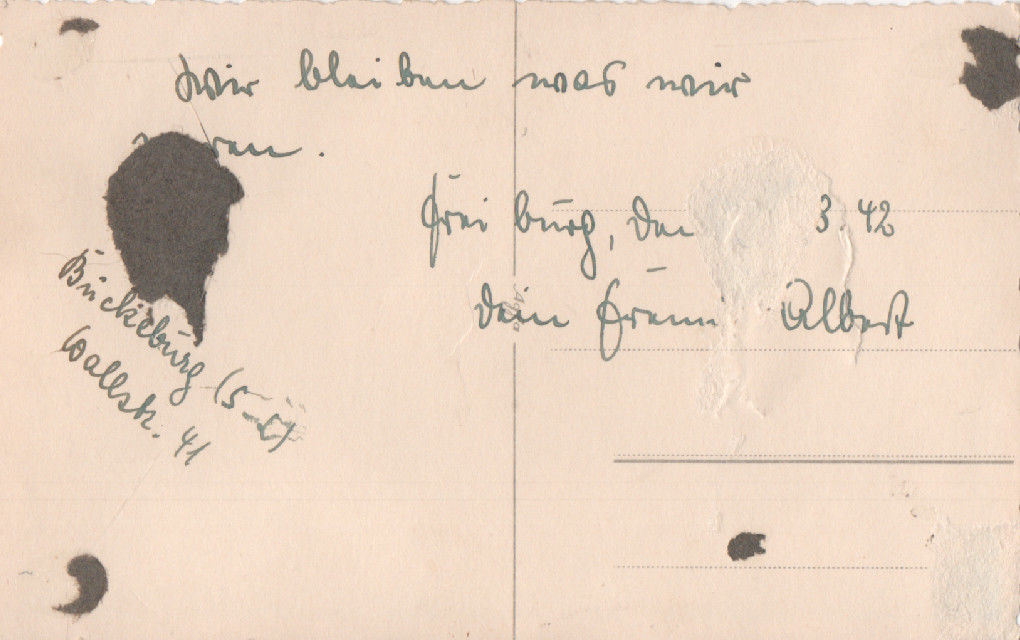 Wir bleiben was wir
waren.
Freiburg, den 3.42
Dein Freund Albert
Bückeburg (S-L)
Wallstr. 41
Agfa